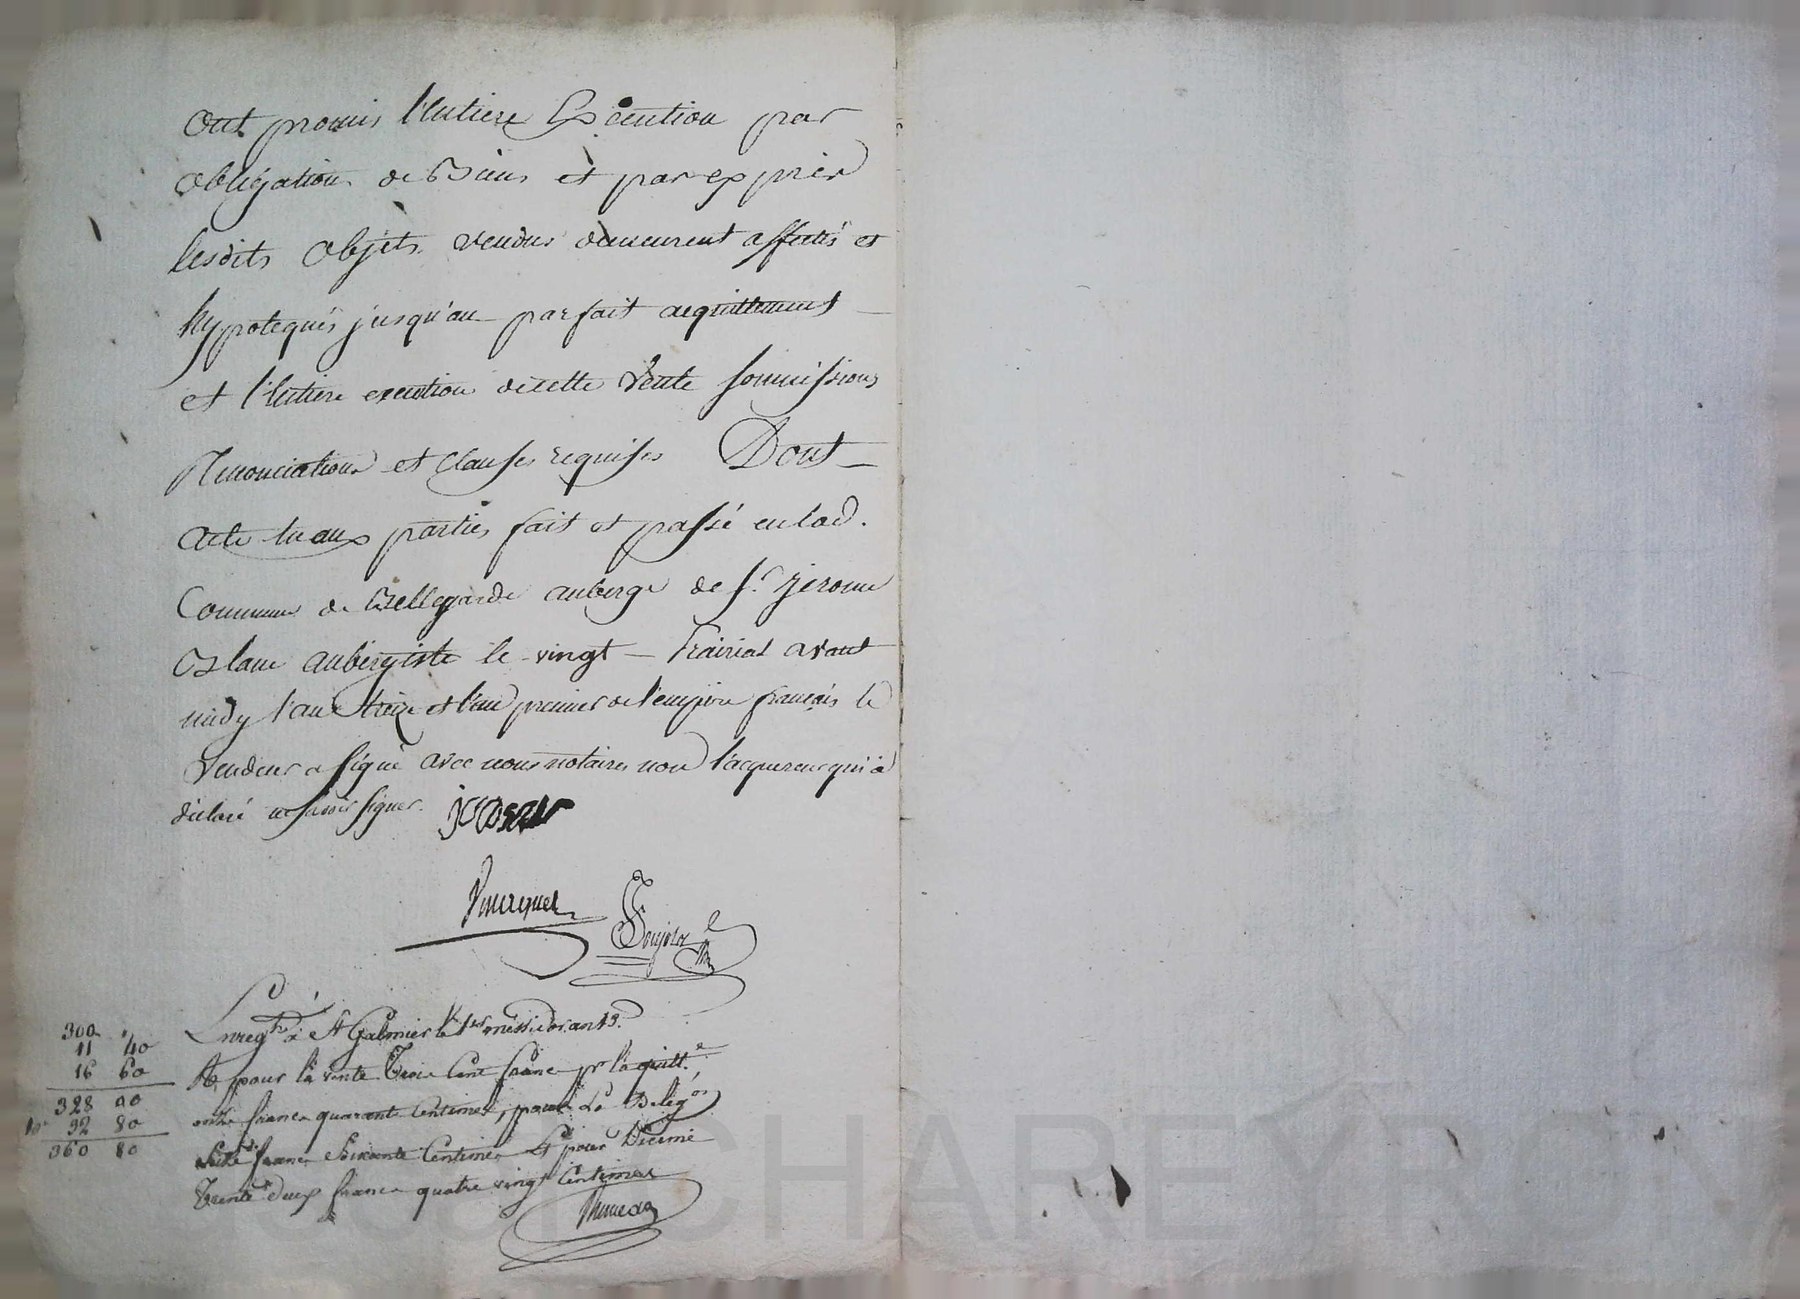 ont promis l'entiere Execution par
obligation de Biens et par exprès
lesdits objets vendus demeurent affectés et
hypotequés jusqu'au parfait acquittement
et l'entiere execution de cette vente soumissions
Renonciations et clauses requises Dont
acte lu aux parties fait et passé en lad.
Commune de Bellegarde auberge de sr. jerome
aubergiste le vingt prairial avant
midy l'an treize et l'an premier de l'empire français le
vendeur a signé avec nous notaires non l'acquereur qui a
déclaré ne savoir signer.
Enregtré à St Galmier le 1er messidor an 13.
R pour la vente Trois Cent franc pr la quitt.e,
onze francs quarante Centimes, pour La Delegon
seize francs Soixante Centimes Et pour Décime
Trente deux francs quatre vingt Centimes
300 "
11 40
16 60
328 00
10e 32 80
360 80
JOSEPH CHAREYRON